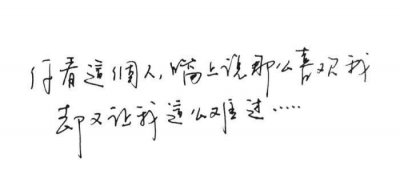 你看這個人,嘴上说那么喜欢我
却又让我這么难过.....